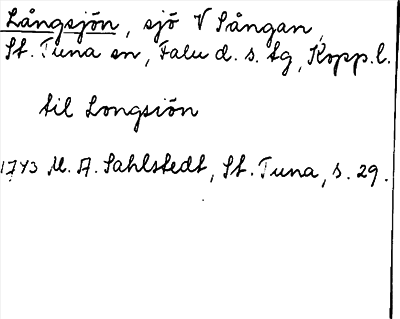 Långsjön, sjö V Sången,
St. Tuna sn, Falu d. s. tg, Kopp. l.
til Longsiön
1743 M. A. Sahlstedt, St. Tuna, s. 29.